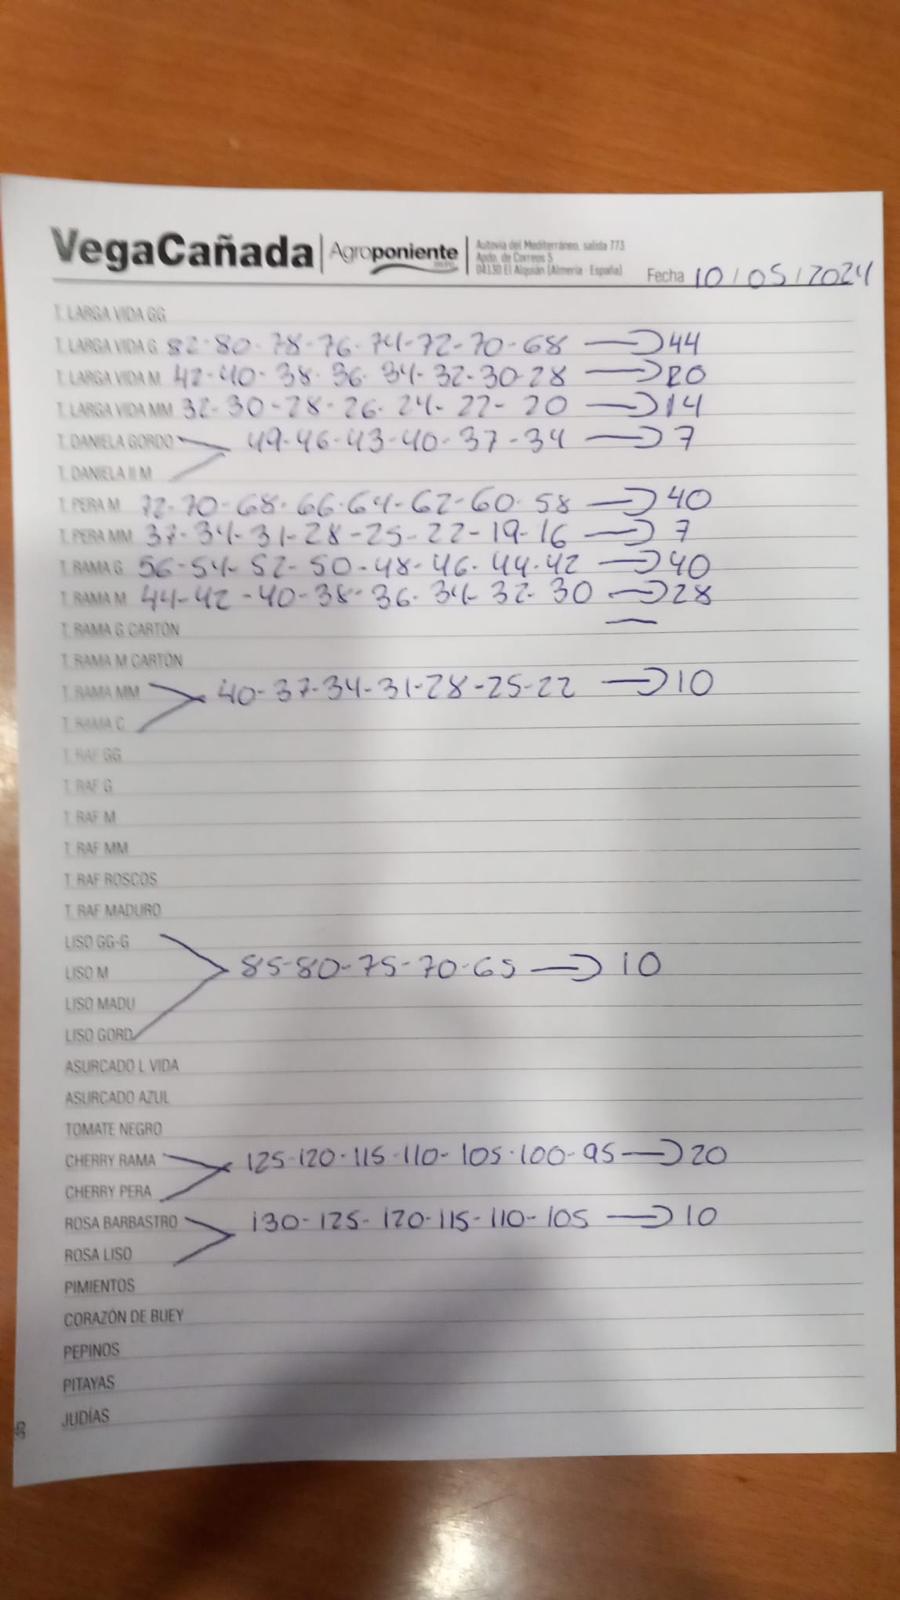 VegaCañada | Agroponiente
Autovía del Mediterráneo, salida 773
Apdo. de Correos 5
04130 El Alquián (Almería - España)
Fecha 10/05/2024
T. LARGA VIDA GG
T. LARGA VIDA G 82-80-78-76-74-72-70-68 → 44
T. LARGA VIDA M 42-40-38-36-34-32-30-28 → 20
T. LARGA VIDA MM 32-30-28-26-24-22-20 → 14
T. DANIELA GORDO 49-46-43-40-37-34 → 7
T. DANIELA II M
T. PERA M 72-70-68-66-64-62-60-58 → 40
T. PERA MM 37-34-31-28-25-22-19-16 → 7
T. RAMA G 56-54-52-50-48-46-44-42 → 40
T. RAMA M 44-42-40-38-36-34-32-30 → 28
T. RAMA G CARTÓN
T. RAMA M CARTÓN
T. RAMA MM 40-37-34-31-28-25-22 → 10
T. RAMA C
T. RAF GG
T. RAF G
T. RAF M
T. RAF MM
T. RAF ROSCOS
T. RAF MADURO
LISO GG-G
LISO M 85-80-75-70-65 → 10
LISO MADU
LISO GORD
ASURCADO L VIDA
ASURCADO AZUL
TOMATE NEGRO
CHERRY RAMA 125-120-115-110-105-100-95 → 20
CHERRY PERA
ROSA BARBASTRO 130-125-120-115-110-105 → 10
ROSA LISO
PIMIENTOS
CORAZÓN DE BUEY
PEPINOS
PITAYAS
JUDÍAS